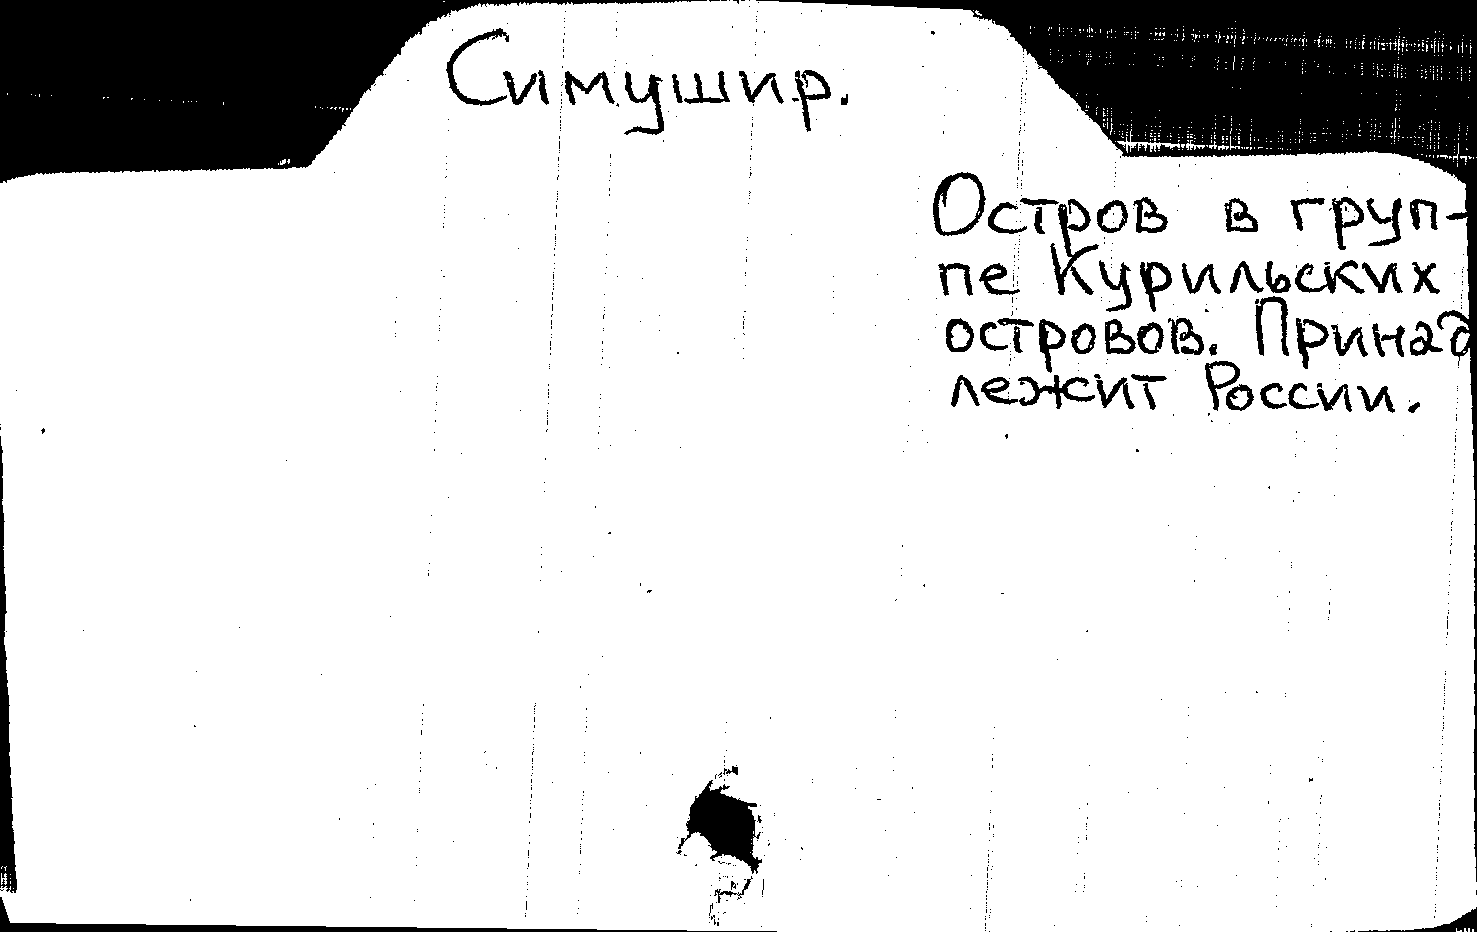 Симушир.
Остров в груп-
пе Курильских
островов. Принад
лежит России.